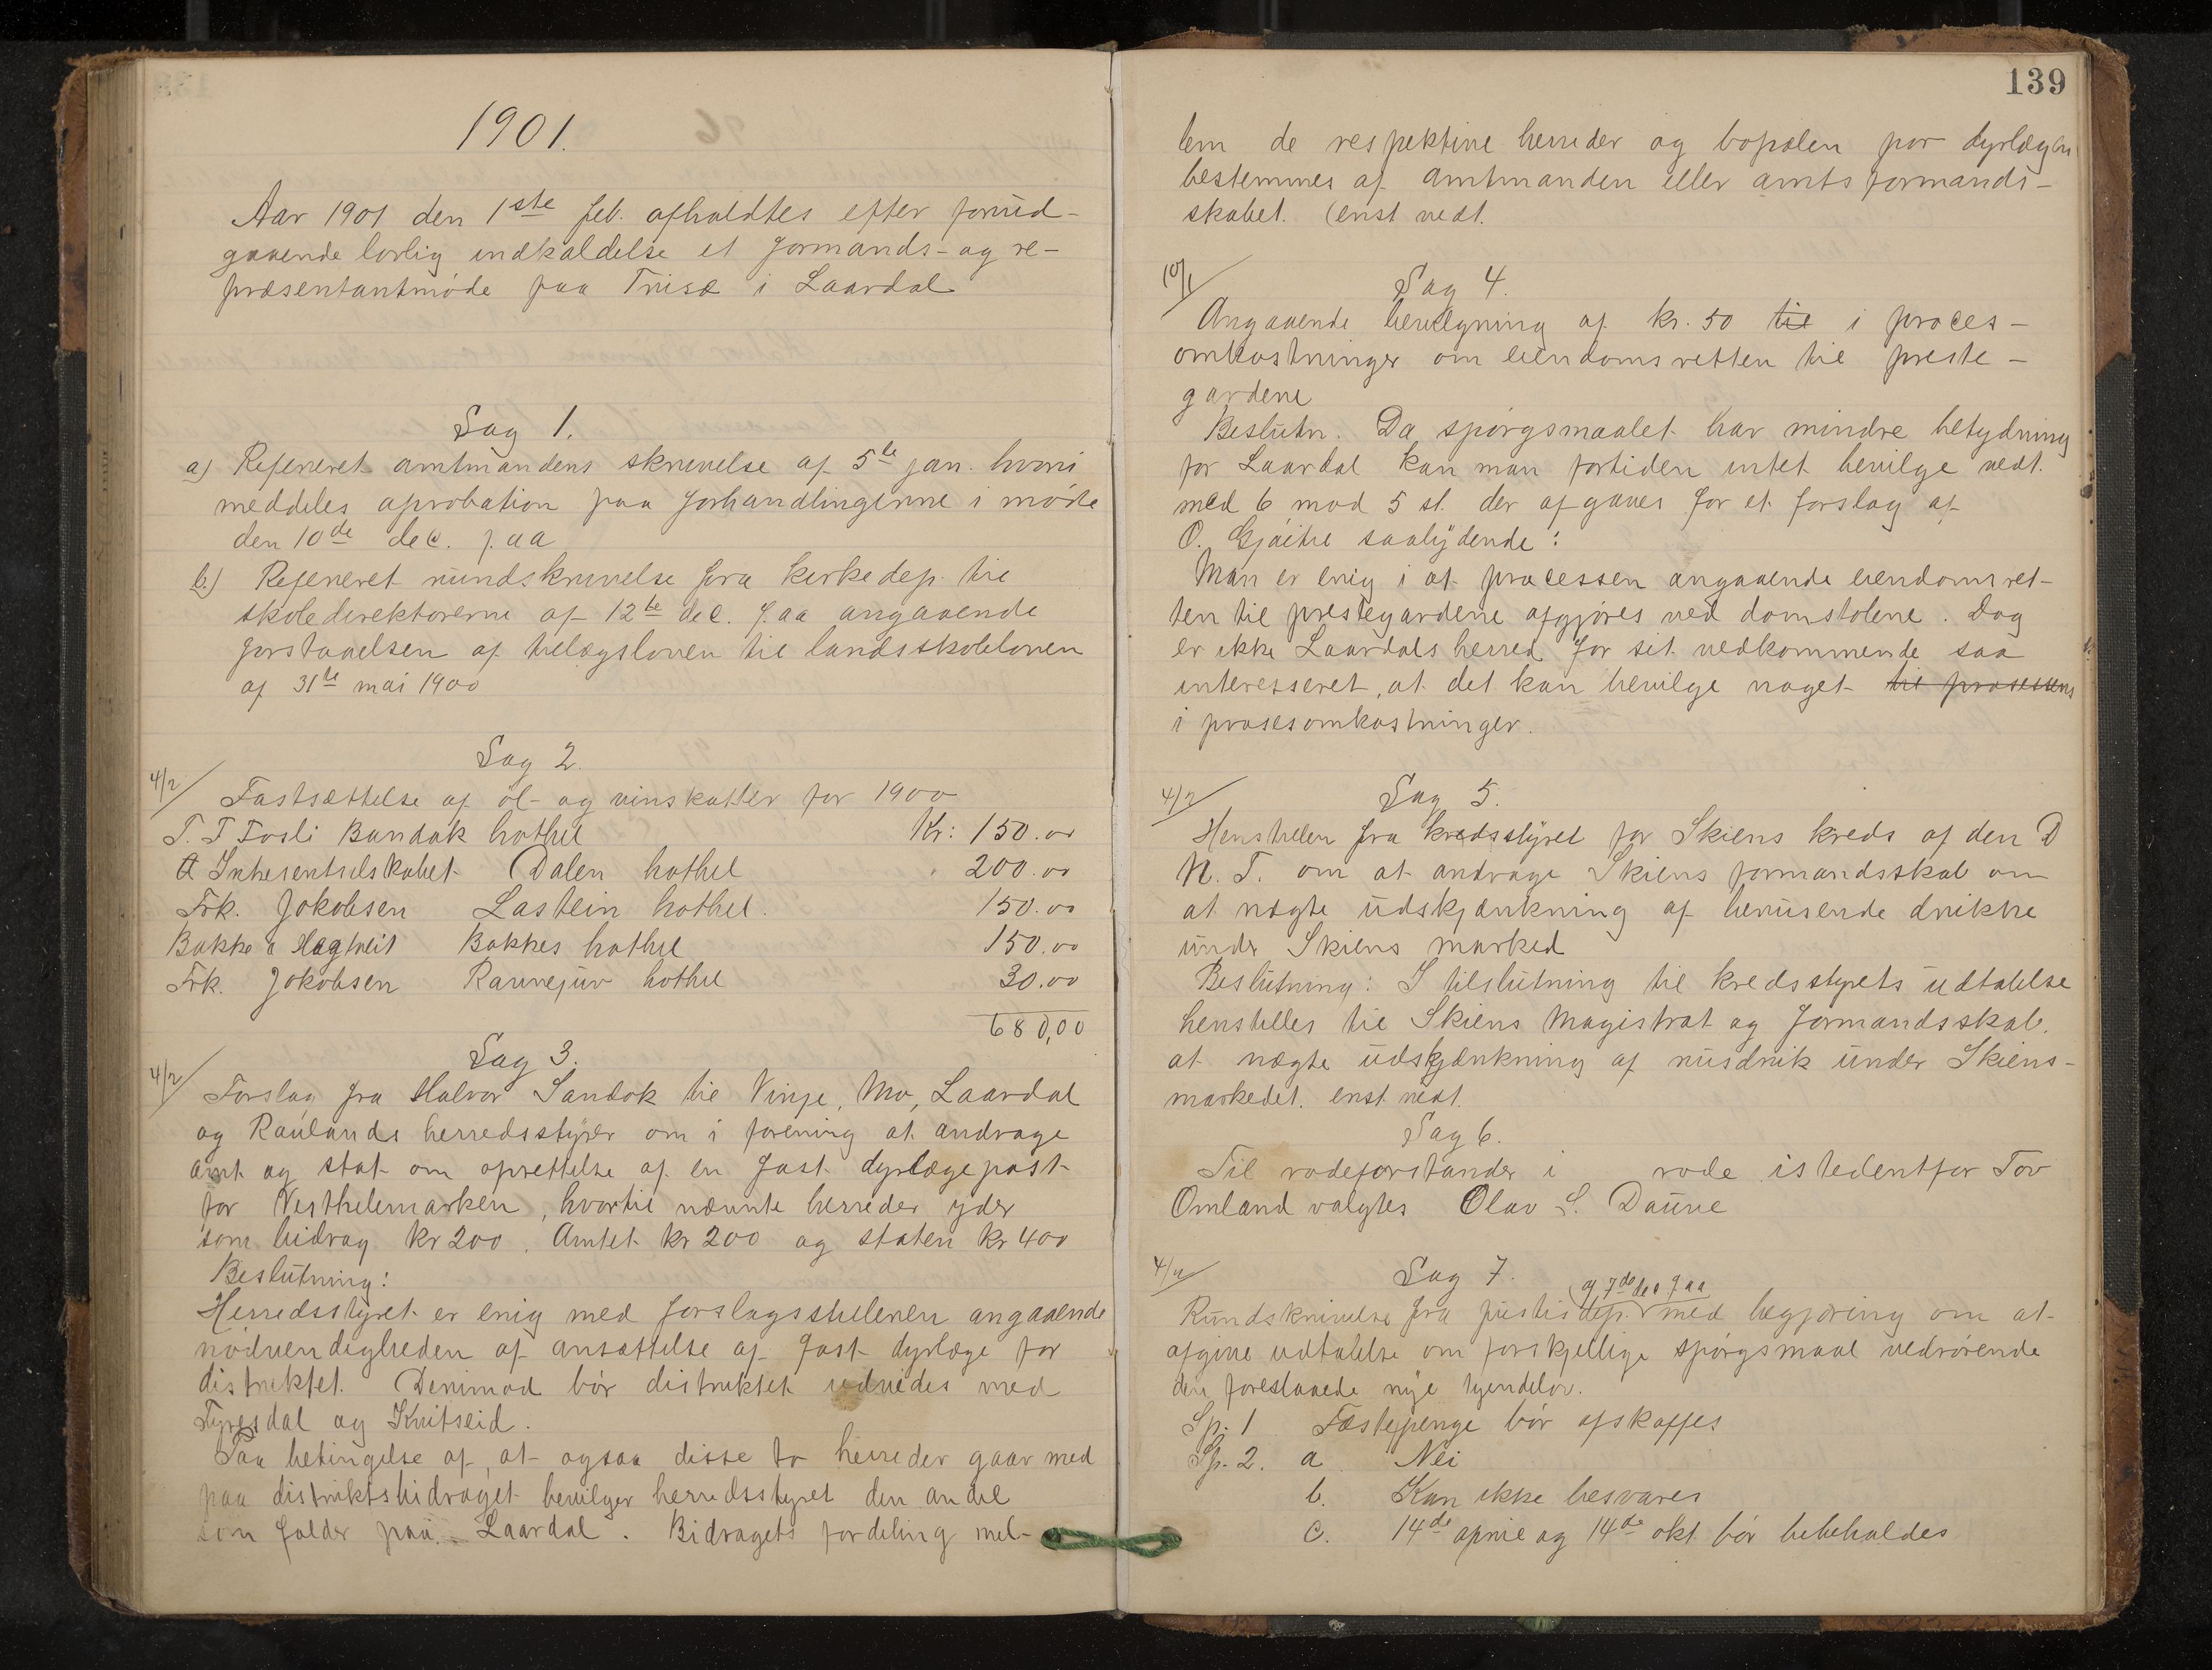 1901.
Aar 1901 den 1ste feb. afholdtes efter forud-
gaaende lovlig indkaldelse et formands- og re-
præsentantmøde paa Trisæ i Laardal
Sag 1.
a) Refereret amtmandens skrivelse af 5te jan. hvori
meddeles aprobation paa forhandlingerne i møde
den 10de dec. f. aa
b.) Refereret rundskrivelse fra kirkedep. til
skoledirektørerne af 12te dec. f. aa angaaende
forstaaelsen af tillægsloven til landsskoleloven
af 31te mai 1900
Sag 2.
4/2
Fastsættelse af øl- og vinskatter for 1900
T. T Fosli Bandak hothel Kr: 150.00
Interesentselskabet Dalen hothel 200.00
Frk. Jokobsen Lastein hothel. 150.00
Bakke & Hegtveit Bakkes hothel 150.00
Frk. Jokobsen Ravnejuv hothel 30.00
680,00
Sag 3.
4/2
Forslag fra Halvor Sandok til Vinje, Mo, Laardal
og Raulands herredsstyrer om i forening at andrage
amt og stat om oprettelse af en fast dyrlægepost
for Vesthelemarken, hvortil nævnte herreder yder
som bidrag kr 200, Amtet kr 200 og staten kr 400
Beslutning:
Herredsstyret er enig med forslagsstilleren angaaende
nødvendigheden af ansættelse af fast dyrlæge for
distriktet. Derimod bør distriktet udvides med
Tyresdal og Kvitseid.
Paa betingelse af, at ogsaa disse to herreder gaar med
paa distriktsbidraget bevilger herredsstyret den andel
som falder paa Laardal. Bidragets fordeling mel-
139
lem de respektive herreder og bopælen for dyrlægen
bestemmes af amtmanden eller amtsformand-
skabet. (enst vedt.
10/1
Sag 4.
Angaaende bevilgning af kr. 50 til i proces-
omkostninger om eiendomsretten til preste-
gardene
Beslutn. Da spørgsmaalet har mindre betydning
for Laardal kan man fortiden intet bevilge vedt.
med 6 mod 5 st. der afgaves for et forslag af
O. saalydende:
Man er enig i at processen angaaende eiendomsret-
ten til prestegardene afgjøres ved domstolene. Dog
er ikke Laardals herred for sit vedkommende saa
interesseret, at det kan bevilge noget til prosessens
i prosesomkostninger.
4/2
Sag 5.
Henstillen fra kredsstyret for Skiens kreds af den D
N. T. om at andrage Skiens formandsskab om
at nægte udskjænkning af berusende drikke
under Skiens marked
Beslutning: I tilslutning til kredsstyrets udtalelse
henstilles til Skiens Magistrat og formandsskab.
at nægte udskjænkning af rusdrik under Skiens-
markedet. enst vedt.
Sag 6.
Til rodeforstander i rode istedentfor Tov
Omland valgtes Olav S. Daūve
4/2
Sag 7.
af 7de dec f aa
Rundskrivelse fra justisdep. med begjæring om at
afgive udtalelse om forskjellige spørgsmaal vedrørende
den foreslaaede nye tyendelov.
Sp. 1 Fæstepenge bør afskaffes
Sp. 2. a Nei
b. Kan ikke besvares
c. 14de april og 14de okt. bør bebeholdes